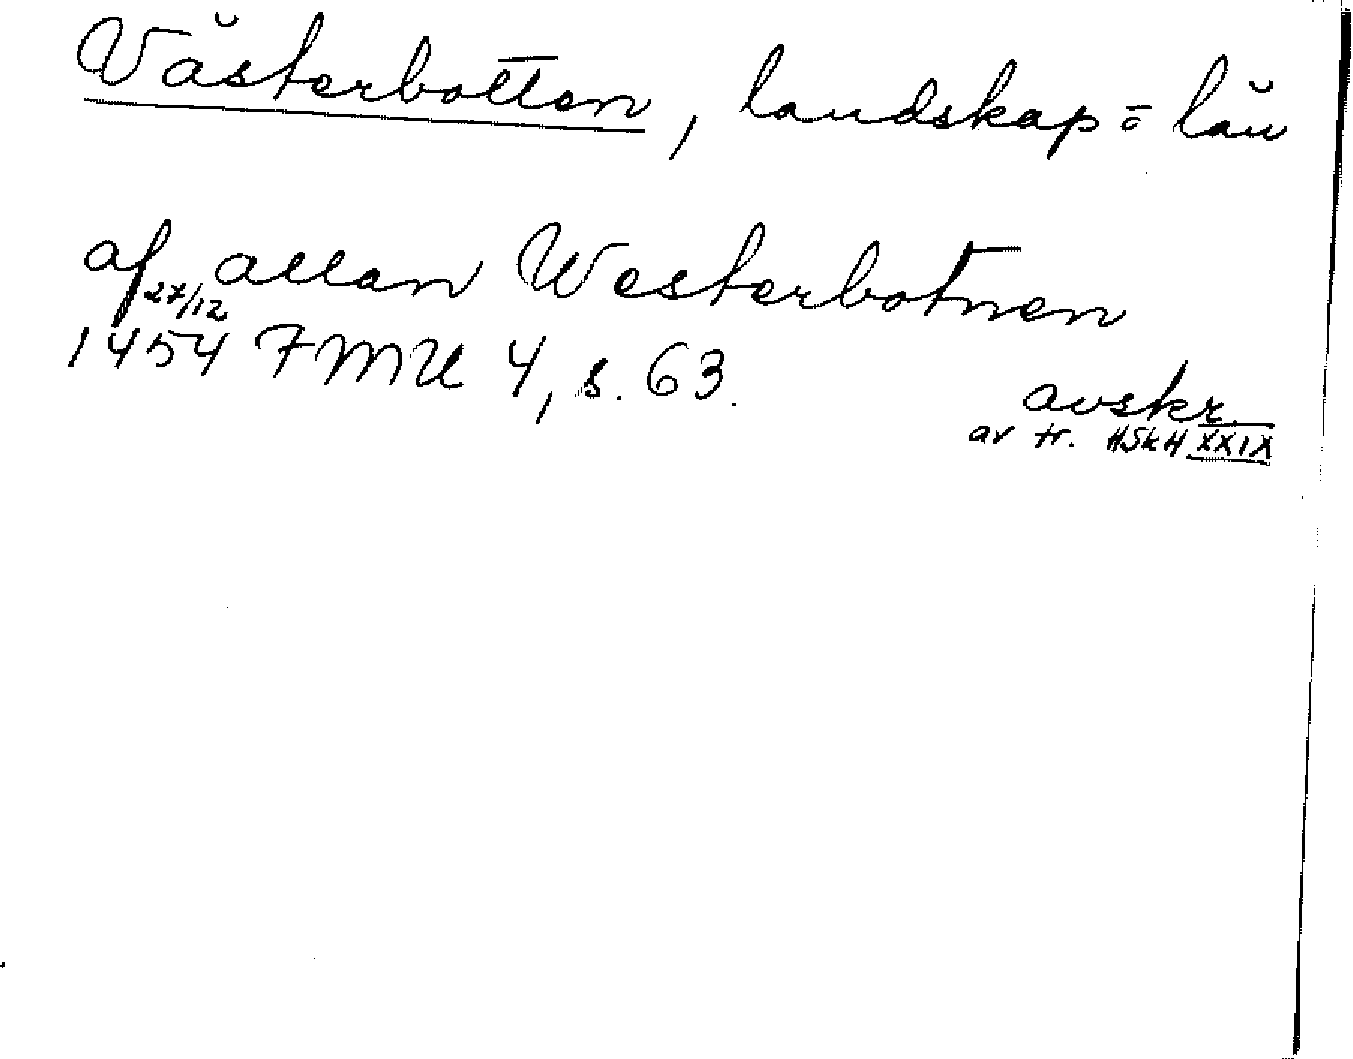 Västerbotten, landskap = län
af allan Westerbotnen
27/12
1454 FMU 4, s. 63.
avskr.
av tr. HSkH XXIX